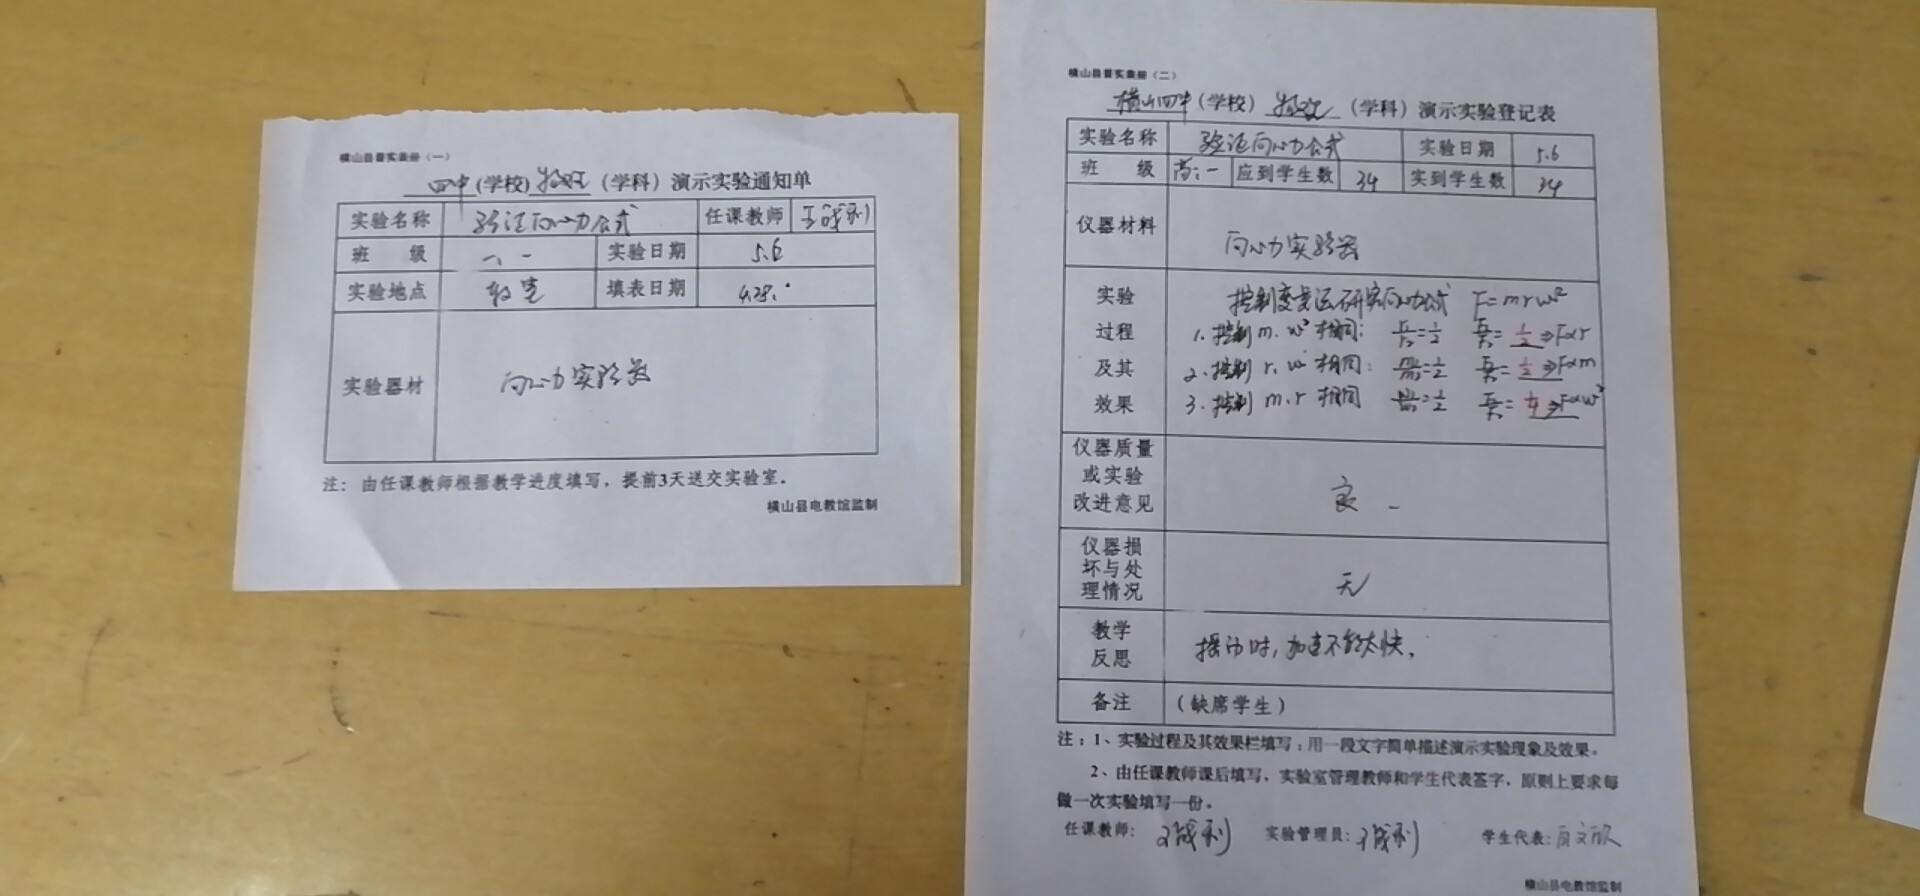 横山县普实表册（一）
四中(学校) 物理 (学科) 演示实验通知单
实验名称 验证向心力公式 任课教师 王战利
班 级 一、一 实验日期 5.6
实验地点 教室 填表日期 4.28.
实验器材 向心力实验器
注：由任课教师根据教学进度填写，提前3天送交实验室。
横山县电教馆监制
横山县普实表册（二）
横山四中(学校) 物理 (学科) 演示实验登记表
实验名称 验证向心力公式 实验日期 5.6
班 级 高一 应到学生数 34 实到学生数 34
仪器材料 向心力实验器
实验 控制变量法研究向心力公式 F=mrw²
过程 1.控制m.w²相同: =1/2 = 1/2 ⇒F∝r
及其 2.控制r.w相同: =1/2 = 1/2 ⇒F∝m
效果 3.控制m.r相同 =1/2 = 1/4 ⇒F∝w²
仪器质量
或实验
改进意见 良
仪器损
坏与处
理情况 无
教学
反思 摇动时,加速不能太快.
备注 (缺席学生)
注：1、实验过程及其效果栏填写：用一段文字简单描述演示实验现象及效果。
2、由任课教师课后填写，实验室管理教师和学生代表签字，原则上要求每
做一次实验填写一份。
任课教师: 王战利 实验管理员: 王战利 学生代表:
横山县电教馆监制